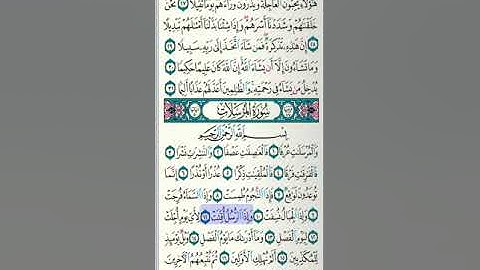 هَٰٓؤُلَآءِ يُحِبُّونَ ٱلْعَاجِلَةَ وَيَذَرُونَ وَرَآءَهُمْ يَوْمًا ثَقِيلًا ٢٧ نَّحْنُ
خَلَقْنَٰهُمْ وَشَدَدْنَآ أَسْرَهُمْ وَإِذَا شِئْنَا بَدَّلْنَآ أَمْثَٰلَهُمْ تَبْدِيلًا
٢٨ إِنَّ هَٰذِهِۦ تَذْكِرَةٌ فَمَن شَآءَ ٱتَّخَذَ إِلَىٰ رَبِّهِۦ سَبِيلًا ٢٩
وَمَا تَشَآءُونَ إِلَّآ أَن يَشَآءَ ٱللَّهُ إِنَّ ٱللَّهَ كَانَ عَلِيمًا حَكِيمًا ٣٠
يُدْخِلُ مَن يَشَآءُ فِى رَحْمَتِهِۦ وَٱلظَّٰلِمِينَ أَعَدَّ لَهُمْ عَذَابًا أَلِيمًۢا ٣١
سُورَةُ المُرْسَلَات
بِسْمِ ٱللَّهِ ٱلرَّحْمَٰنِ ٱلرَّحِيمِ
وَٱلْمُرْسَلَٰتِ عُرْفًا ١ فَٱلْعَٰصِفَٰتِ عَصْفًا ٢ وَٱلنَّٰشِرَٰتِ نَشْرًا ٣
فَٱلْفَٰرِقَٰتِ فَرْقًا ٤ فَٱلْمُلْقِيَٰتِ ذِكْرًا ٥ عُذْرًا أَوْ نُذْرًا ٦ إِنَّمَا
تُوعَدُونَ لَوَٰقِعٌ ٧ فَإِذَا ٱلنُّجُومُ طُمِسَتْ ٨ وَإِذَا ٱلسَّمَآءُ فُرِجَتْ
٩ وَإِذَا ٱلْجِبَالُ نُسِفَتْ ١٠ وَإِذَا ٱلرُّسُلُ أُقِّتَتْ ١١ لِأَىِّ يَوْمٍ أُجِّلَتْ
١٢ لِيَوْمِ ٱلْفَصْلِ ١٣ وَمَآ أَدْرَىٰكَ مَا يَوْمُ ٱلْفَصْلِ ١٤ وَيْلٌ يَوْمَئِذٍ
لِّلْمُكَذِّبِينَ ١٥ أَلَمْ نُهْلِكِ ٱلْأَوَّلِينَ ١٦ ثُمَّ نُتْبِعُهُمُ ٱلْءَاخِرِينَ